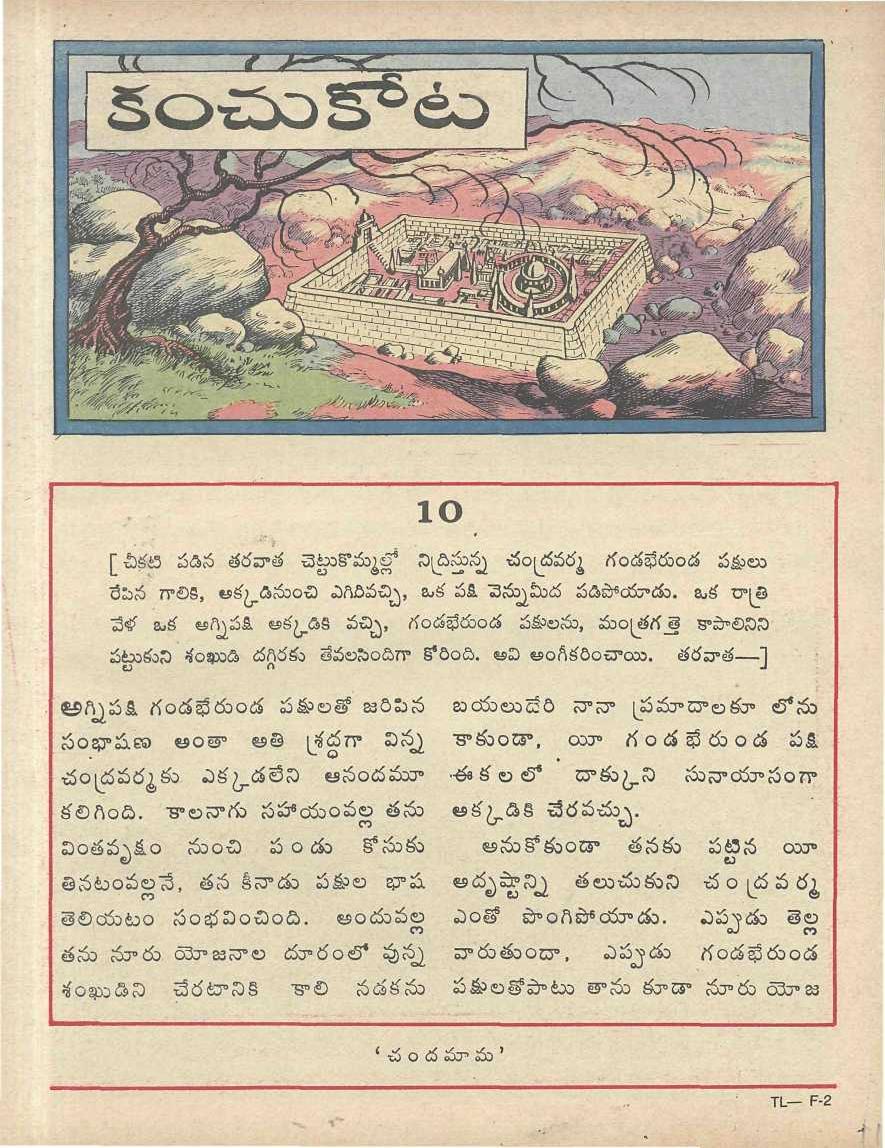 కంచుకోట
10
[ చీకటి పడిన తరవాత చెట్టుకొమ్మల్లో నిద్రిస్తున్న చంద్రవర్మ గండభేరుండ పక్షులు
రేపిన గాలికి, అక్కడినుంచి ఎగిరివచ్చి, ఒక పక్షి వెన్నుమీద పడిపోయాడు. ఒక రాత్రి
వేళ ఒక అగ్నిపక్షి అక్కడికి వచ్చి, గండభేరుండ పక్షులను, మంత్రగత్తె కాపాలినిని
పట్టుకుని శంఖుడి దగ్గిరకు తేవలసిందిగా కోరింది. అవి అంగీకరించాయి. తరవాత—]
అగ్నిపక్షి గండభేరుండ పక్షులతో జరిపిన
సంభాషణ అంతా అతి శ్రద్ధగా విన్న
చంద్రవర్మకు ఎక్కడలేని ఆనందమూ
కలిగింది. కాలనాగు సహాయంవల్ల తను
వింతవృక్షం నుంచి పండు కోసుకు
తినటంవల్లనే, తన కీనాడు పక్షుల భాష
తెలియటం సంభవించింది. అందువల్ల
తను నూరు యోజనాల దూరంలో వున్న
శంఖుడిని చేరటానికి కాలి నడకను
బయలుదేరి నానా ప్రమాదాలకూ లోను
కాకుండా, యీ గండభేరుండ పక్షి
ఈకలలో దాక్కుని సునాయాసంగా
అక్కడికి చేరవచ్చు.
అనుకోకుండా తనకు పట్టిన యీ
అదృష్టాన్ని తలుచుకుని చంద్రవర్మ
ఎంతో పొంగిపోయాడు. ఎప్పుడు తెల్ల
వారుతుందా, ఎప్పుడు గండభేరుండ
పక్షులతోపాటు తాను కూడా నూరు యోజ
‘చందమామ’
TL— F-2